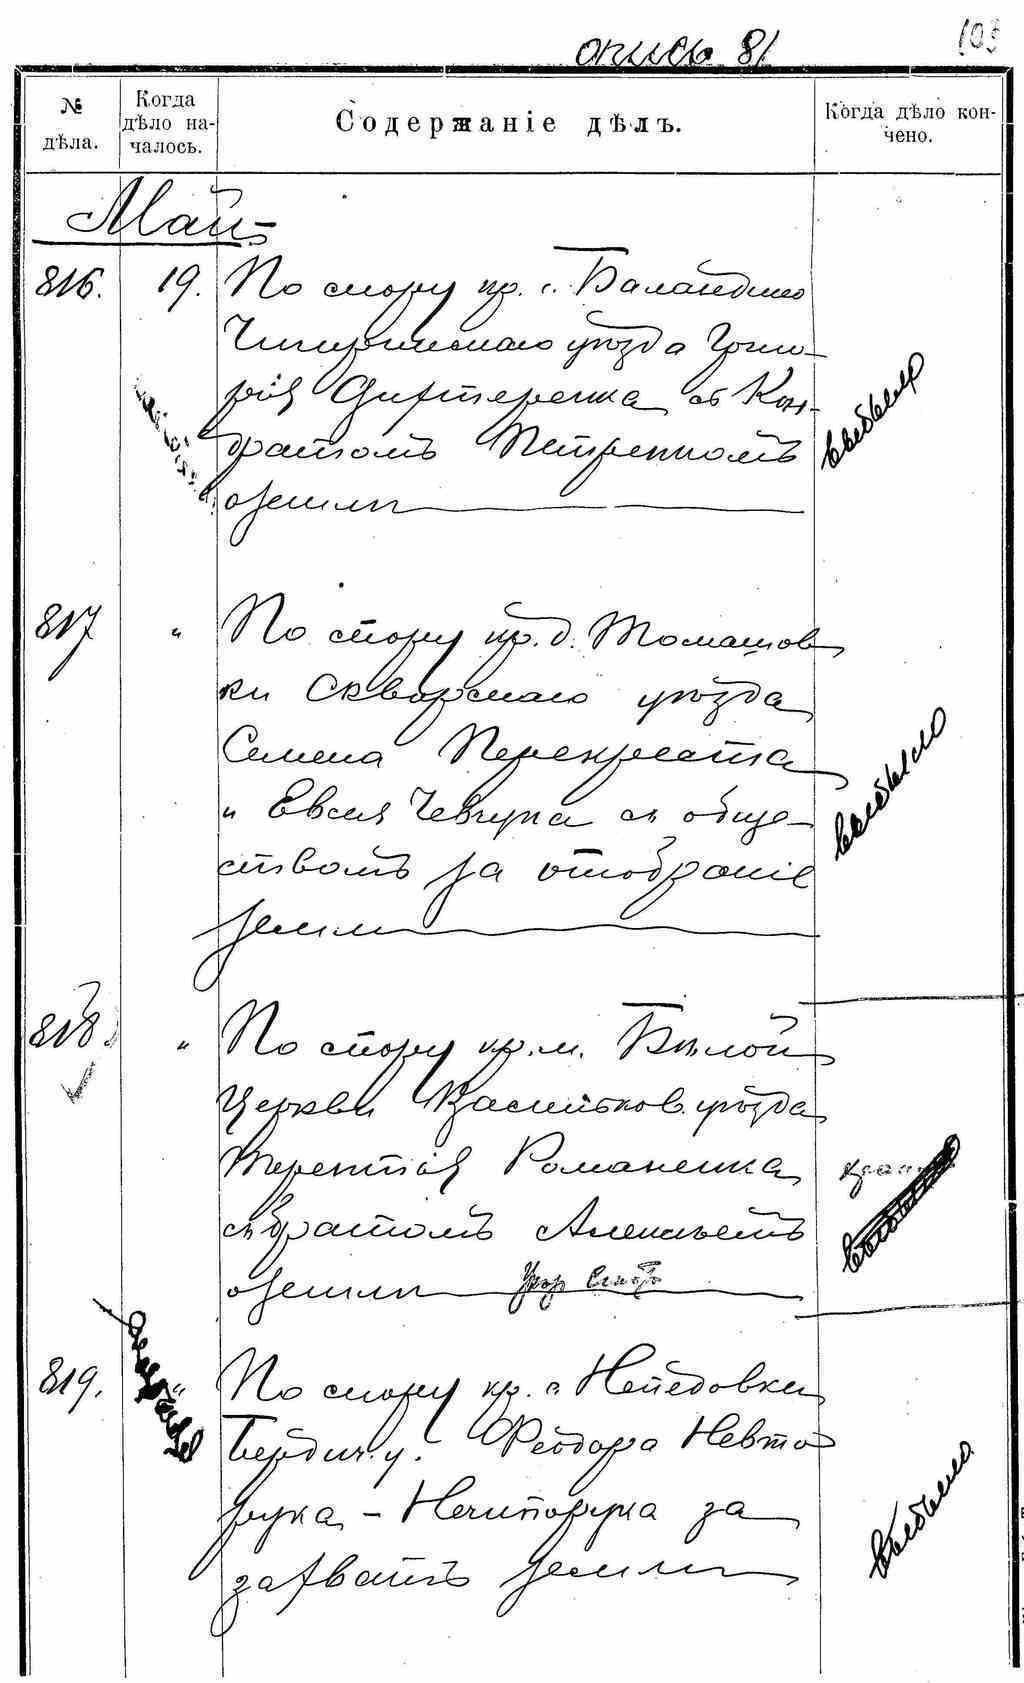 опись 81
103
№ дѣла.
Когда дѣло на-чалось.
Содержаніе дѣлъ.
Когда дѣло кон-чено.
Май
816. 19. По спору кр. с. Баландино
Чигиринскаго уѣзда Григо-
рія Дихтеренка съ Кон-
дратомъ Петренкомъ
о земли
выбыло
817 " По спору кр. д. Томашов
ки Сквирскаго уѣзда
Семена Перекреста
и Евсея Чевчука съ обще-
ствомъ за отобраніе
земли
выбыло
818 " По спору кр. м. Бѣлой
Церкви Васильков. уѣзда
Терентія Романенка
съ братомъ Алексѣемъ
о земли
выбыло
819. " По спору кр. с. Непедовки
Бердич. у. Ѳеодора Невто
рука - Нечипорука за
захватъ земли
выбыло